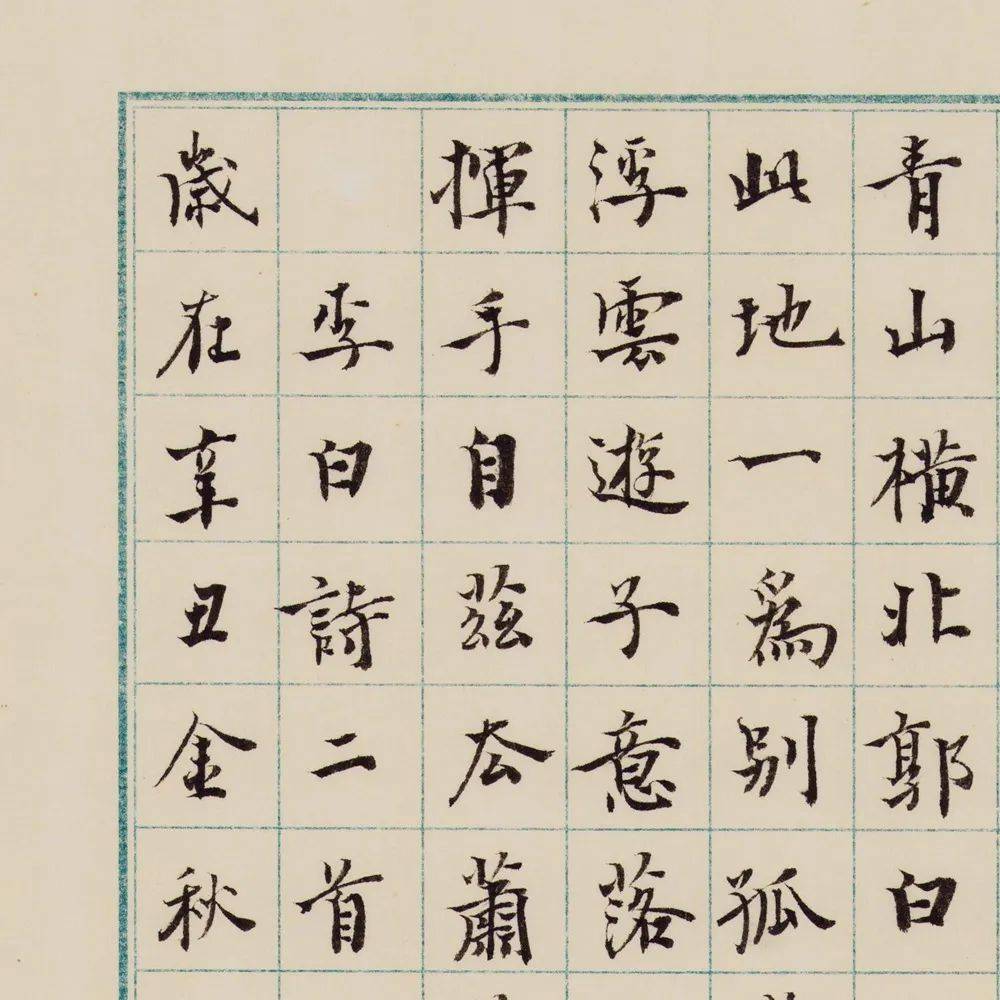 青山橫北郭白
此地一為別孤
浮雲遊子意落
揮手自茲去蕭
李白詩二首
歲在辛丑金秋